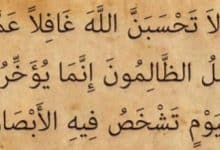 لَا تَحْسَبَنَّ اللَّهَ غَافِلاً عَمَّ
لُ الظَّالِمُونَ إِنَّمَا يُؤَخِّرُ
يَوْمٍ تَشْخَصُ فِيهِ الأَبْصَا